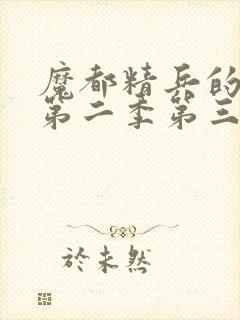 魔都精兵的
第二季第三
於未然